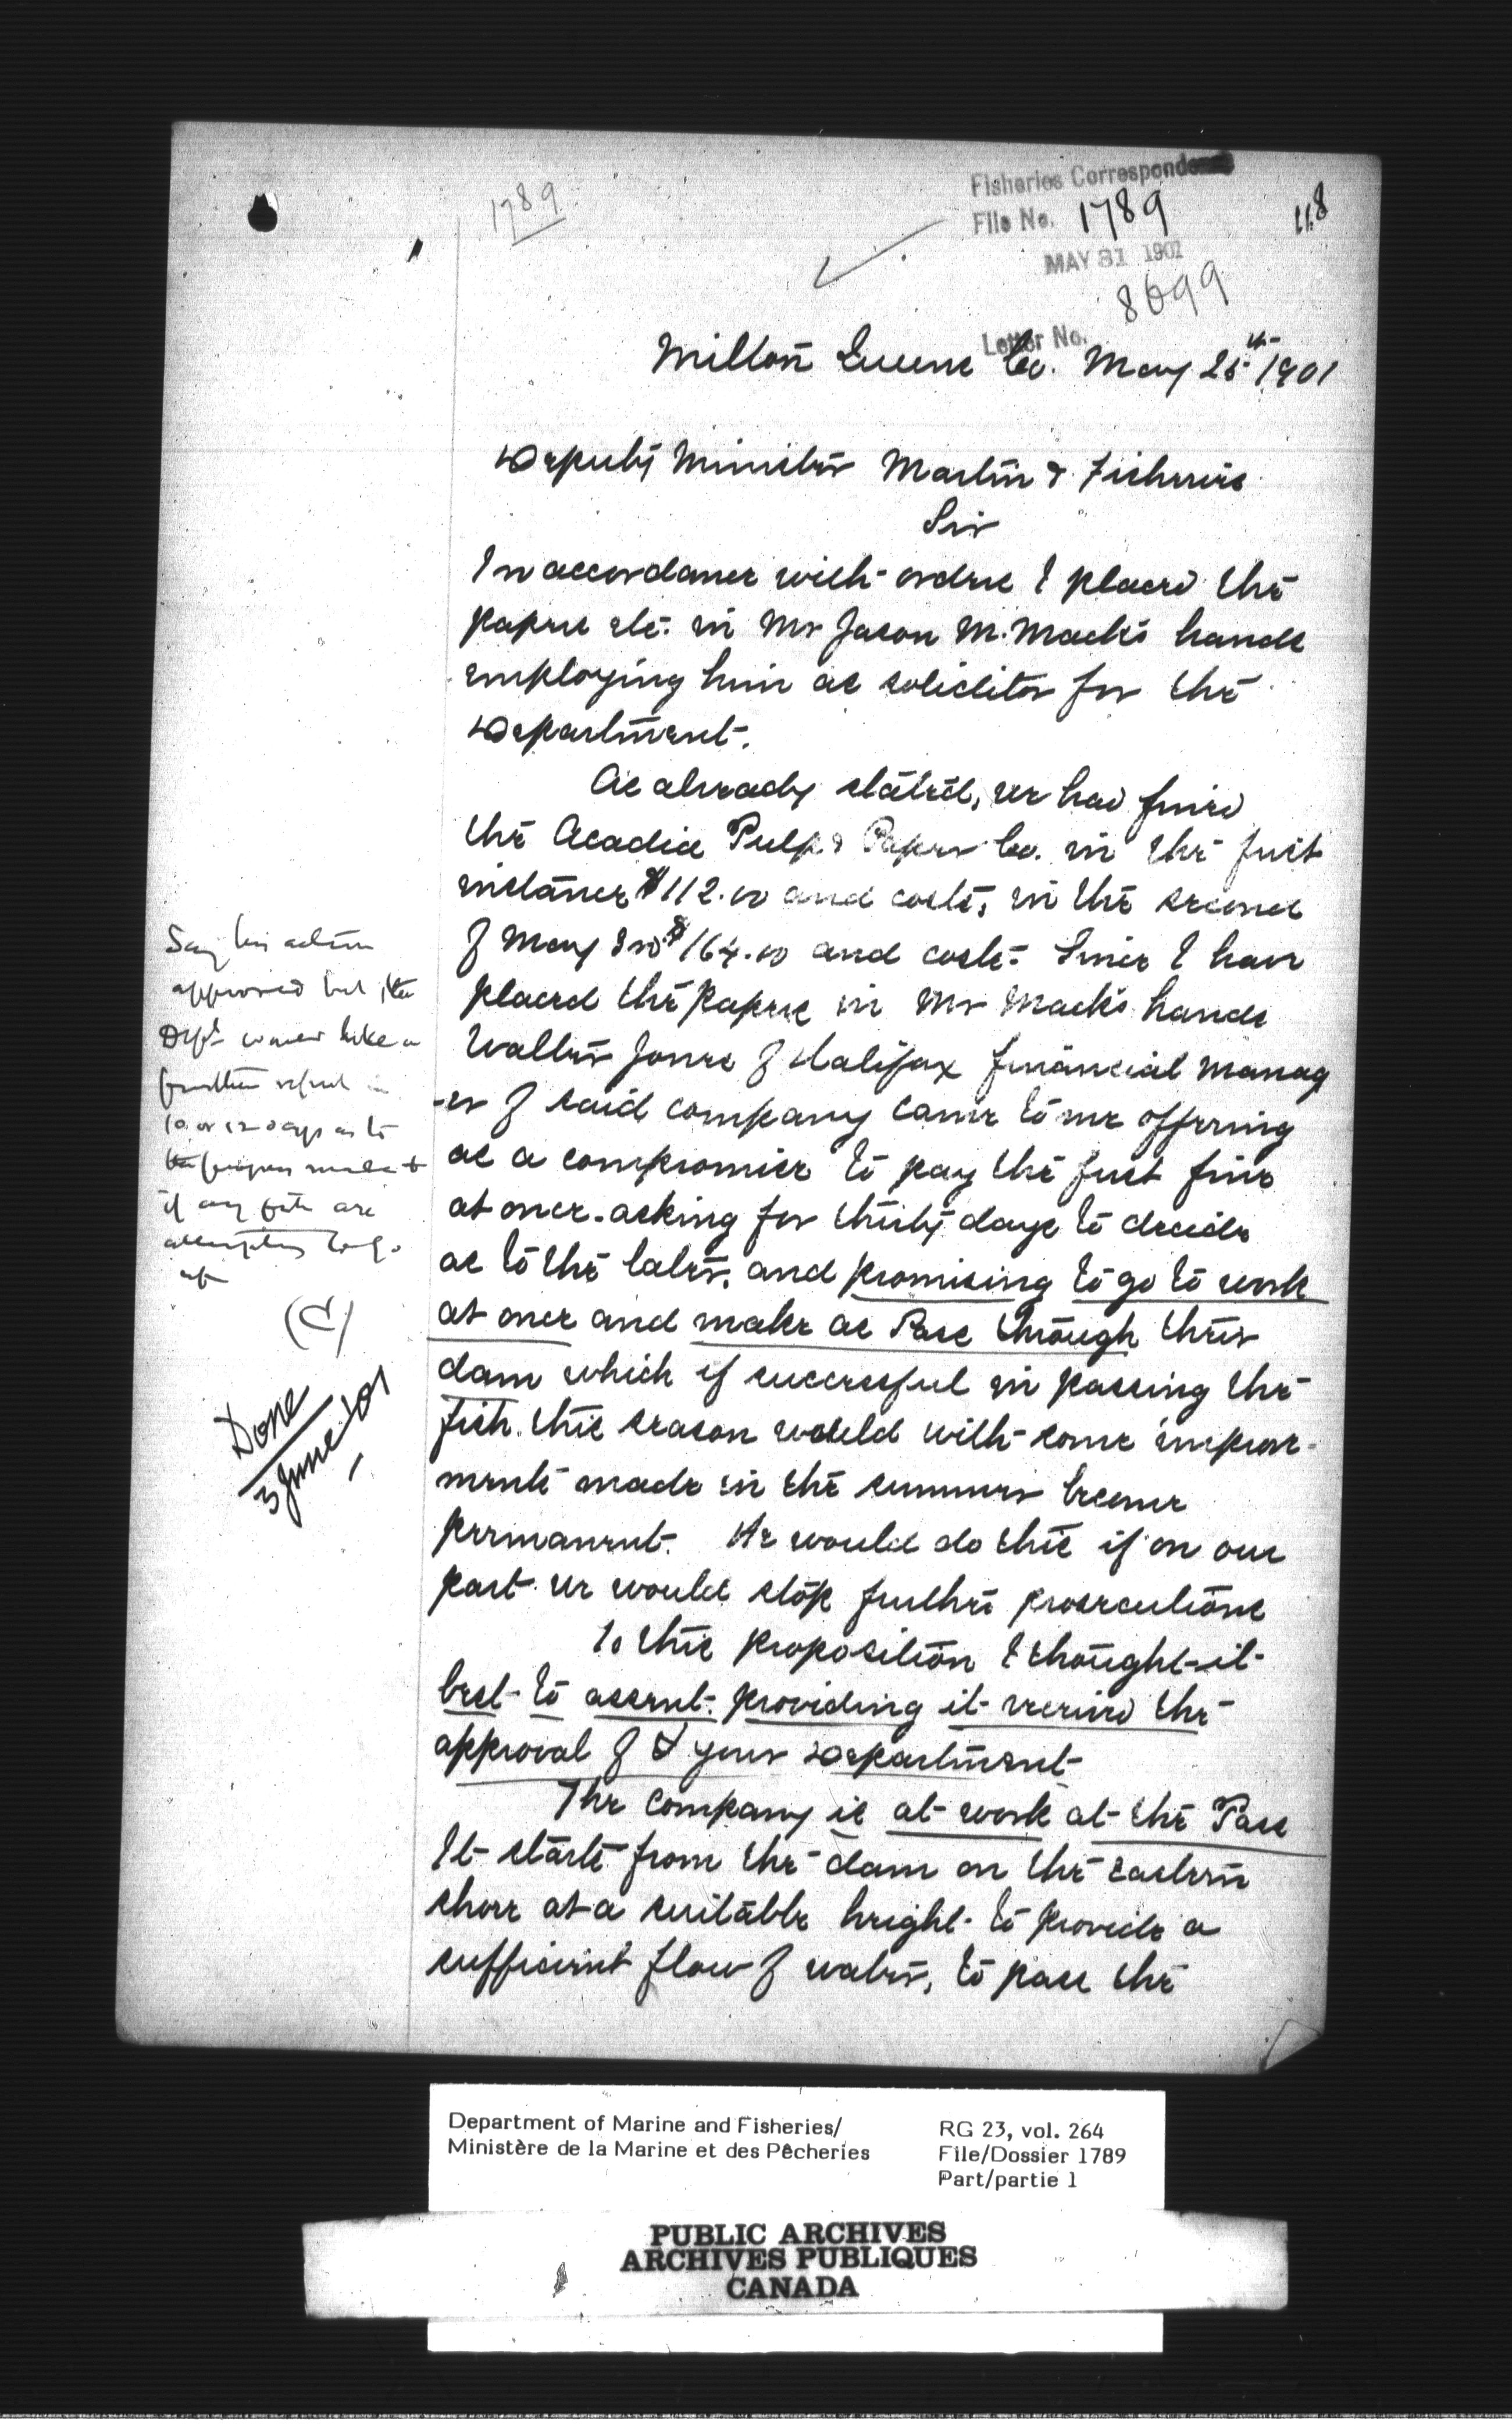 1789
Fisheries Correspondence
File No. 1789
118
MAY 31 1901
8699
Letter No.
Milton Queens Co. May 25th 1901
Deputy Minister Martin & Fisheries
Sir
In accordance with orders I placed the
papers etc. in Mr Jason M. Mack's hands
employing him as solicitor for the
Department.
As already stated, we had fined
the Acadia Pulp & Paper Co. in the first
instance $112.00 and costs, in the second
of May 3rd $164.00 and costs. Since I have
placed the papers in Mr Mack's hands
Walter Jones of Halifax financial manag
-er of said company came to me offering
as a compromise to pay the first fine
at once. asking for thirty days to decide
as to the later, and promising to go to work
at once and make as Pass through their
dam which if successful in passing the
fish. this season would with some improve-
ments made in the summer become
permanent. He would do this if on our
part we would stop further prosecutions
To this proposition I thought it
best to assent. providing it received the
approval of your Department
The company is at work at the Pass
It starts from the dam on the Eastern
shore at a suitable height to provide a
sufficient flow of water, to pass the
Say his action
approved but the
Dept would like a
further report in
10 or 12 days as to
the progress made &
if any fish are
attempting to go
up
Done
3 June '01
Department of Marine and Fisheries/
Ministère de la Marine et des Pêcheries
RG 23, vol. 264
File/Dossier 1789
Part/partie 1
PUBLIC ARCHIVES
ARCHIVES PUBLIQUES
CANADA